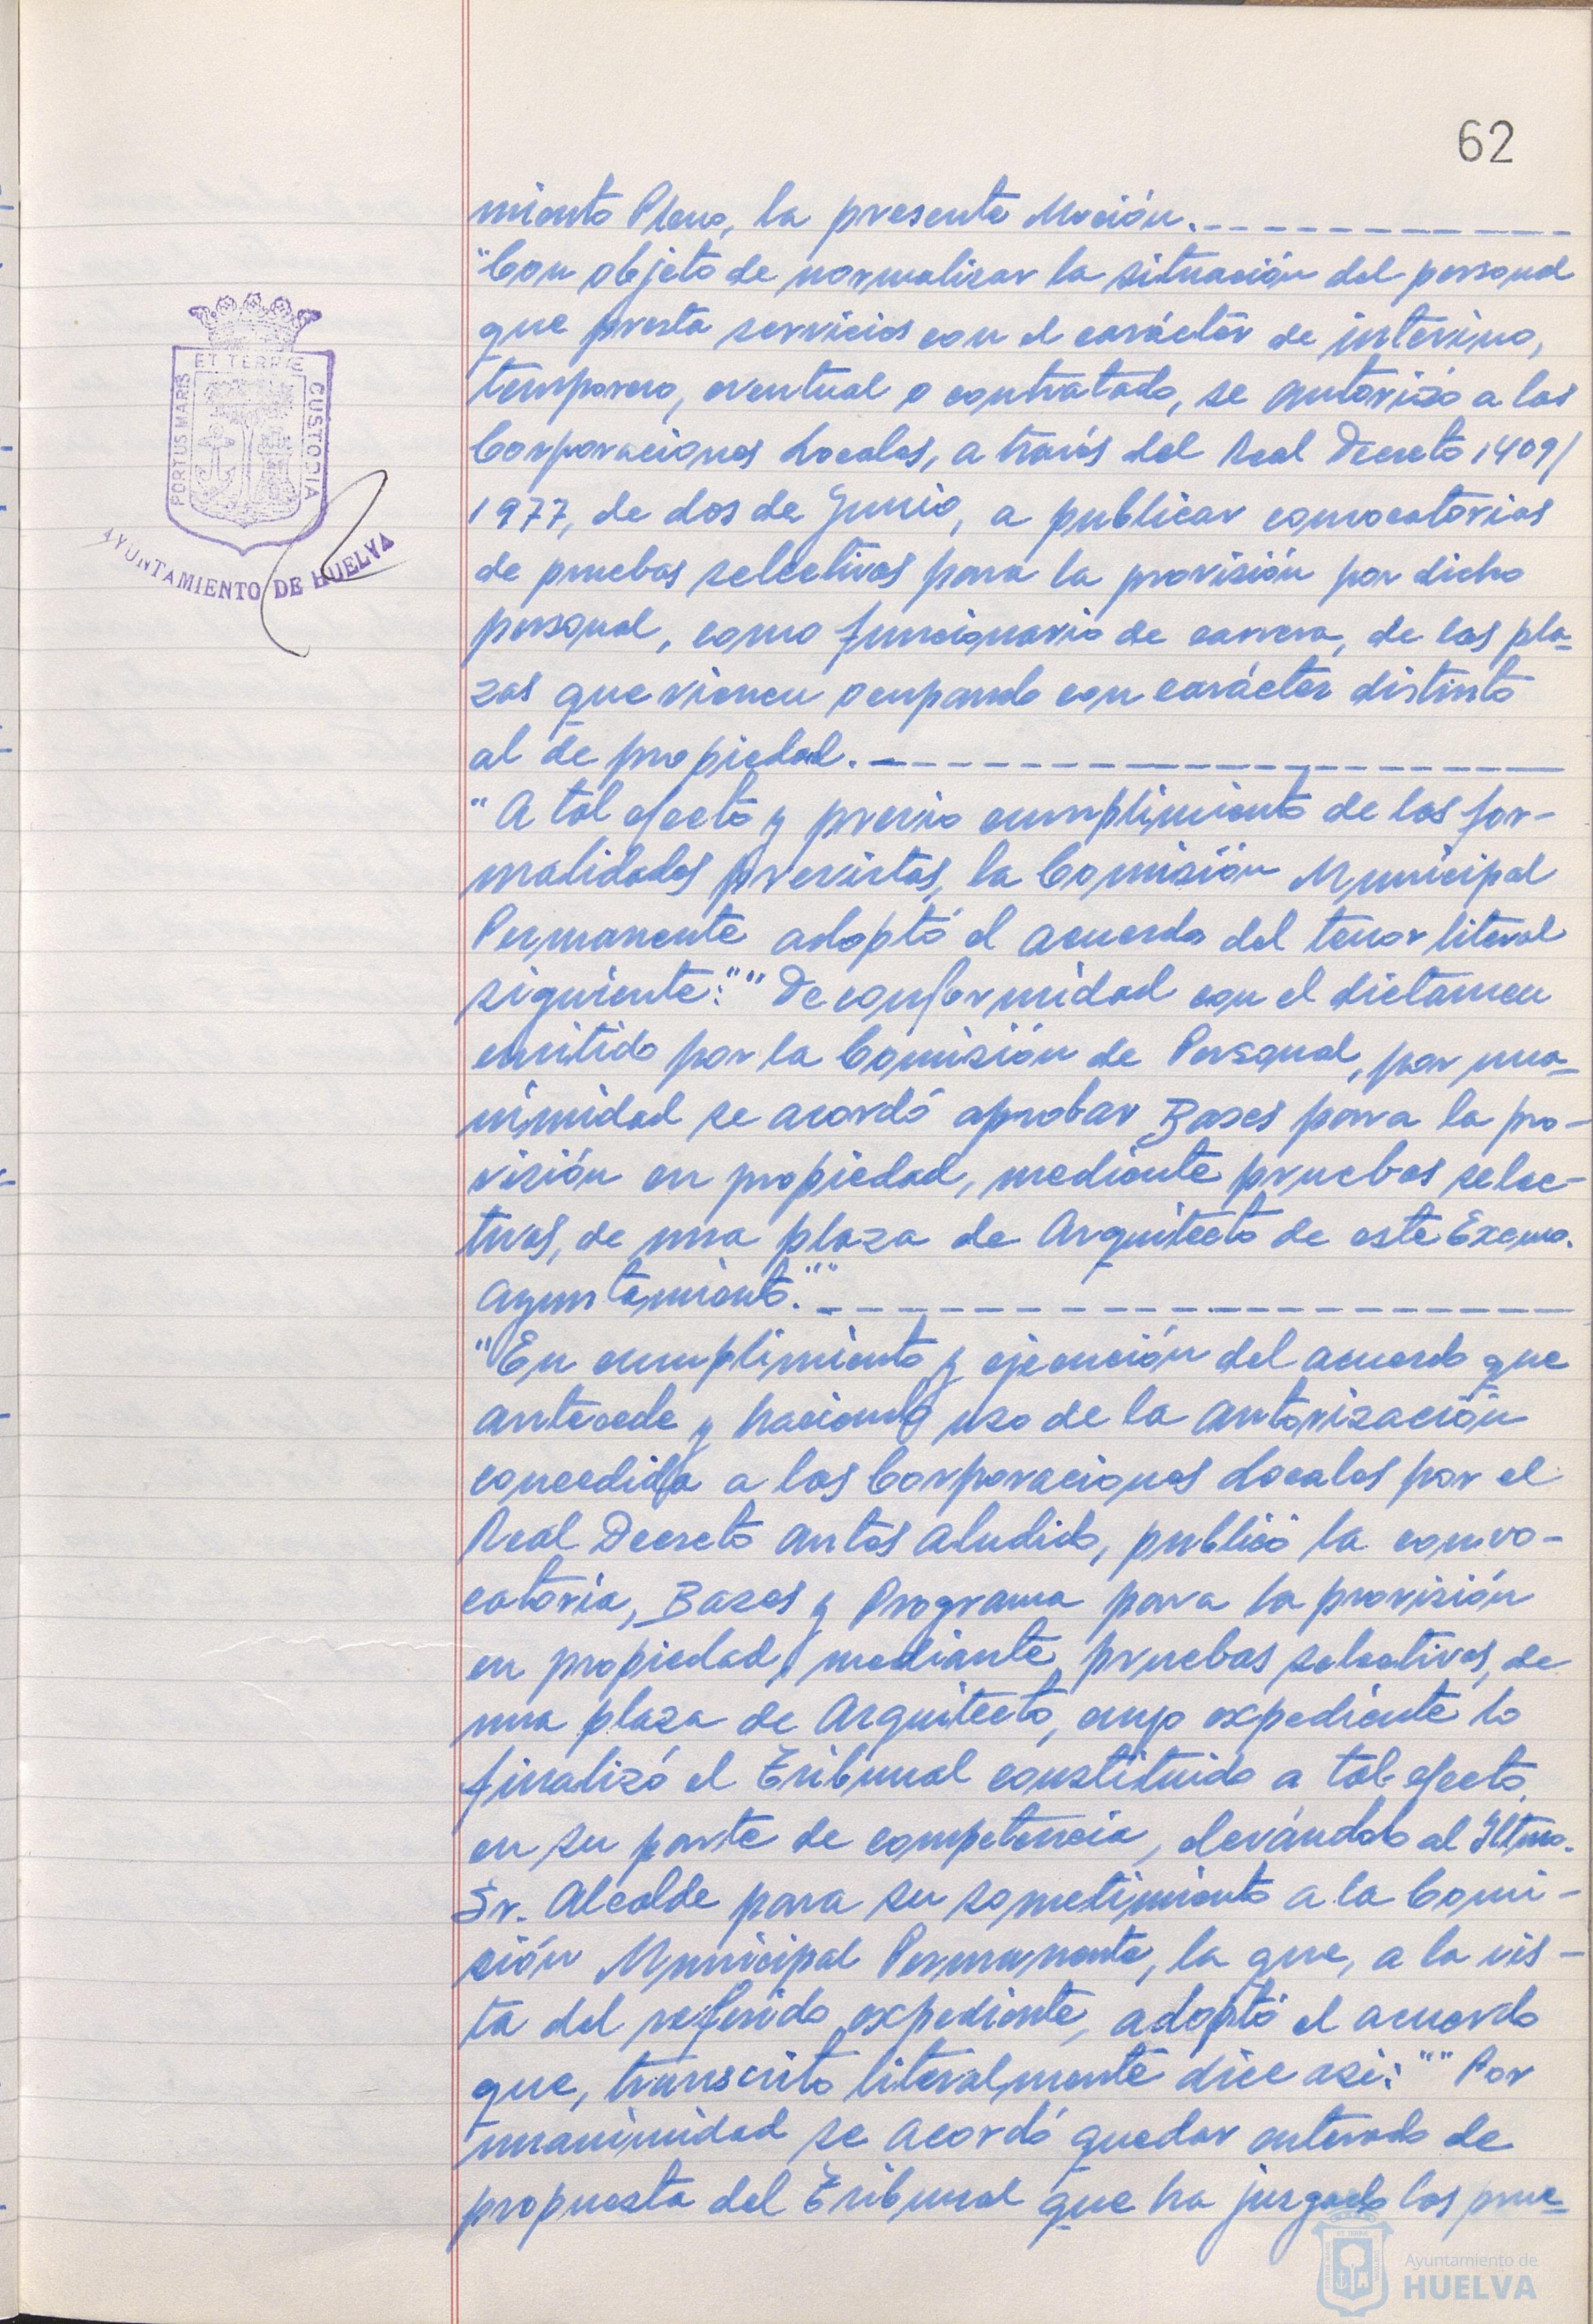 62
miento Pleno, la presente Moción.
"Con objeto de normalizar la situación del personal
que presta servicios con el carácter de interino,
temporero, eventual o contratado, se autorizó a las
Corporaciones Locales, a través del Real Decreto 1409/
1977, de dos de Junio, a publicar convocatorias
de pruebas selectivas para la provisión por dicho
personal, como funcionario de carrera, de las pla-
zas que vienen ocupando con carácter distinto
al de propiedad.
"A tal efecto y previo cumplimiento de las for-
malidades previstas, la Comisión Municipal
Permanente adoptó el acuerdo del tenor literal
siguiente:"" De conformidad con el dictamen
emitido por la Comisión de Personal, por una-
nimidad se acordó aprobar Bases para la pro-
visión en propiedad, mediante pruebas selec-
tivas, de una plaza de Arquitecto de este Excmo.
Ayuntamiento.""
"En cumplimiento y ejecución del acuerdo que
antecede y haciendo uso de la autorización
concedida a las Corporaciones Locales por el
Real Decreto antes aludido, publicó la convo-
catoria, Bases y Programa para la provisión
en propiedad, mediante pruebas selectivas, de
una plaza de Arquitecto, cuyo expediente lo
finalizó el Tribunal constituido a tal efecto,
en su parte de competencia, elevándolo al Iltmo.
Sr. Alcalde para su sometimiento a la Comi-
sión Municipal Permanente, la que, a la vis-
ta del referido expediente, adoptó el acuerdo
que, transcrito literalmente dice asi: "" Por
unanimidad se acordó quedar enterado de
propuesta del Tribunal que ha juzgado las prue-
PORTUS MARIS
ET TERRE
CUSTODIA
AYUNTAMIENTO DE HUELVA
Ayuntamiento de
HUELVA